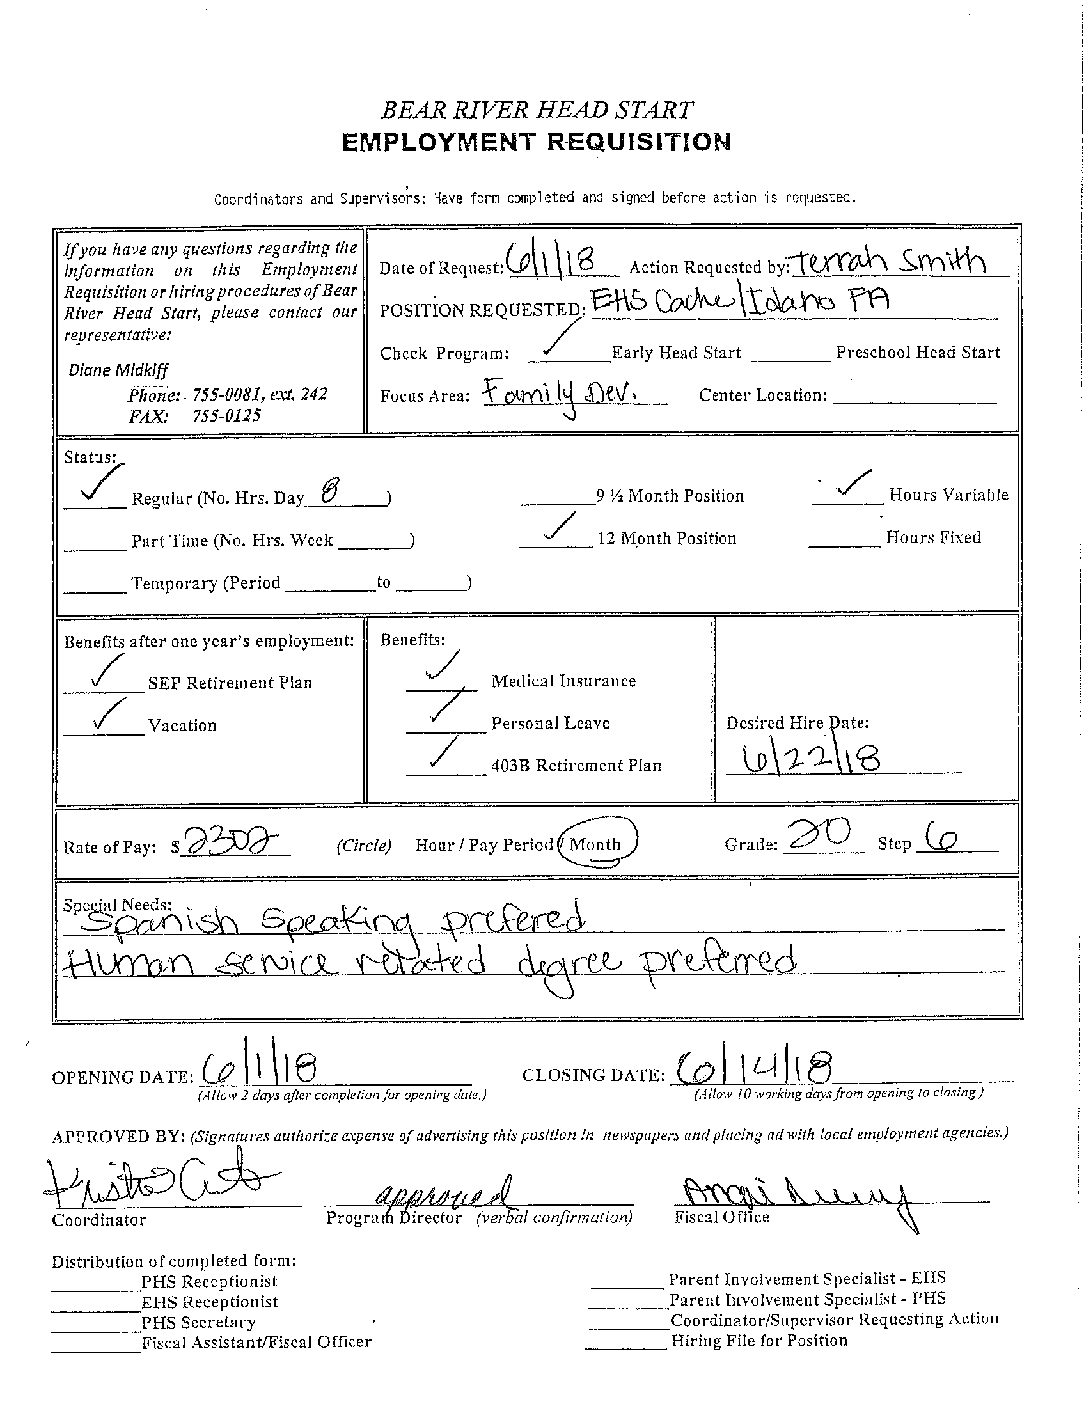 BEAR RIVER HEAD START
EMPLOYMENT REQUISITION
Coordinators and Supervisors: Have form completed and signed before action is requested.
If you have any questions regarding the
information on this Employment
Requisition or hiring procedures of Bear
River Head Start, please contact our
representative:
Diane Midkiff
Phone: 755-0081, ext. 242
FAX: 755-0125
Date of Request: 6/1/18 Action Requested by: Terrah Smith
POSITION REQUESTED: EHS Cache/Idaho PA
Check Program: ✓ Early Head Start ______ Preschool Head Start
Focus Area: Family Dev. Center Location: ______
Status:
✓ Regular (No. Hrs. Day 8 ) ______ 9 ½ Month Position ✓ Hours Variable
______ Part Time (No. Hrs. Week ______) ✓ 12 Month Position ______ Hours Fixed
______ Temporary (Period ______ to ______)
Benefits after one year's employment:
✓ SEP Retirement Plan
✓ Vacation
Benefits:
✓ Medical Insurance
✓ Personal Leave
✓ 403B Retirement Plan
Desired Hire Date:
6/22/18
Rate of Pay: $ 2302 (Circle) Hour / Pay Period / Month Grade: 20 Step 6
Special Needs:
Spanish Speaking prefered
Human service retated degree preferred
OPENING DATE: 6/1/18 CLOSING DATE: 6/14/18
(Allow 2 days after completion for opening date.) (Allow 10 working days from opening to closing)
APPROVED BY: (Signatures authorize expense of advertising this position in newspapers and placing ad with local employment agencies.)
approved
Coordinator Program Director (verbal confirmation) Fiscal Office
Distribution of completed form:
______ PHS Receptionist ______ Parent Involvement Specialist - EHS
______ EHS Receptionist ______ Parent Involvement Specialist - PHS
______ PHS Secretary ______ Coordinator/Supervisor Requesting Action
______ Fiscal Assistant/Fiscal Officer ______ Hiring File for Position